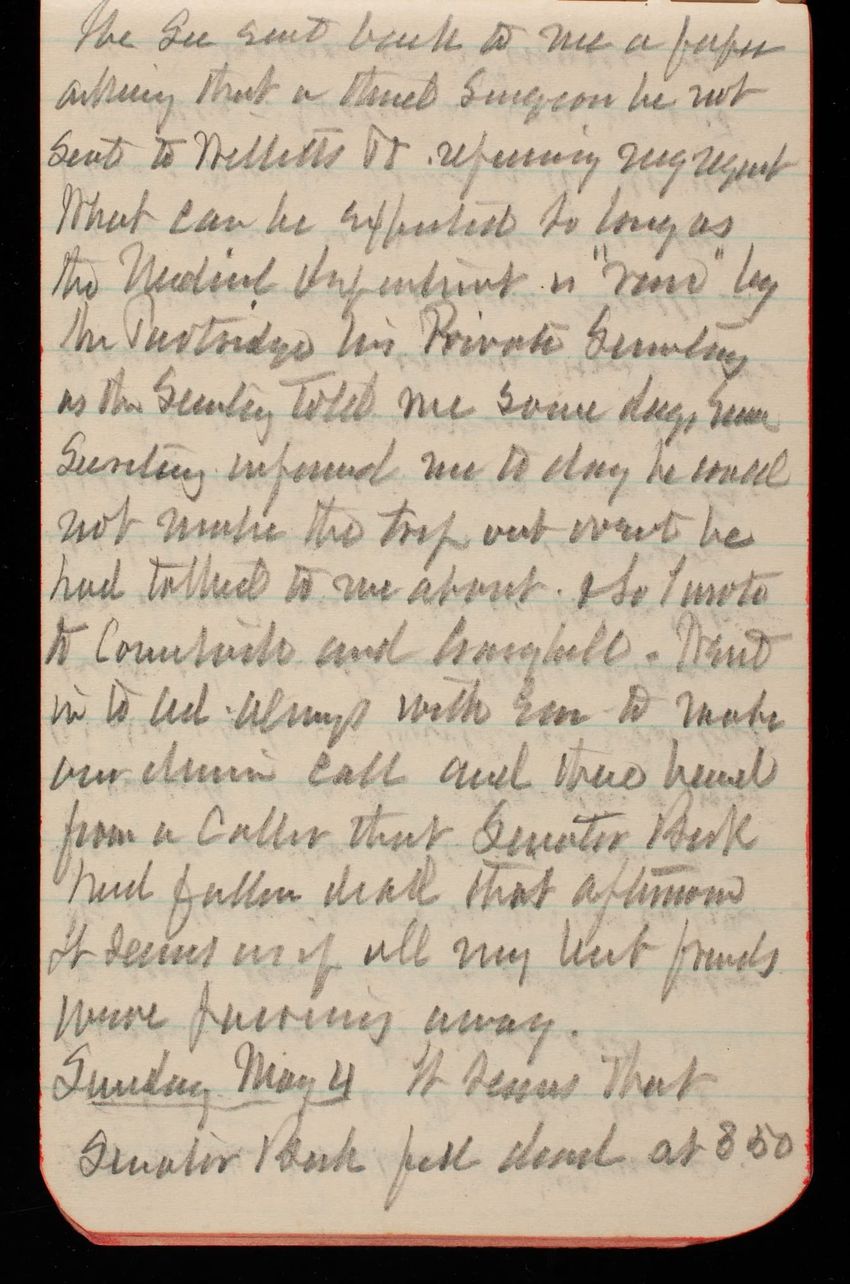 The Sec sent back to me a paper
asking that a third Surgeon be not
sent to Willetts Pt. refusing my request
What can be expected so long as
the Medical Department is "run" by
the Partridge his Private Secretary
as the Secretary told me some days since
Secretary informed me to day he could
not make the trip out west he
had talked to me about. & So I wrote
to Comstock and Craighill. Went
in to as always with Em to make
our call and there heard
from a Caller that Senator Beck
had fallen dead that afternoon
It seems as if all my best friends
were passing away.
Sunday May 4 It seems that
Senator Beck fell dead at 3 50